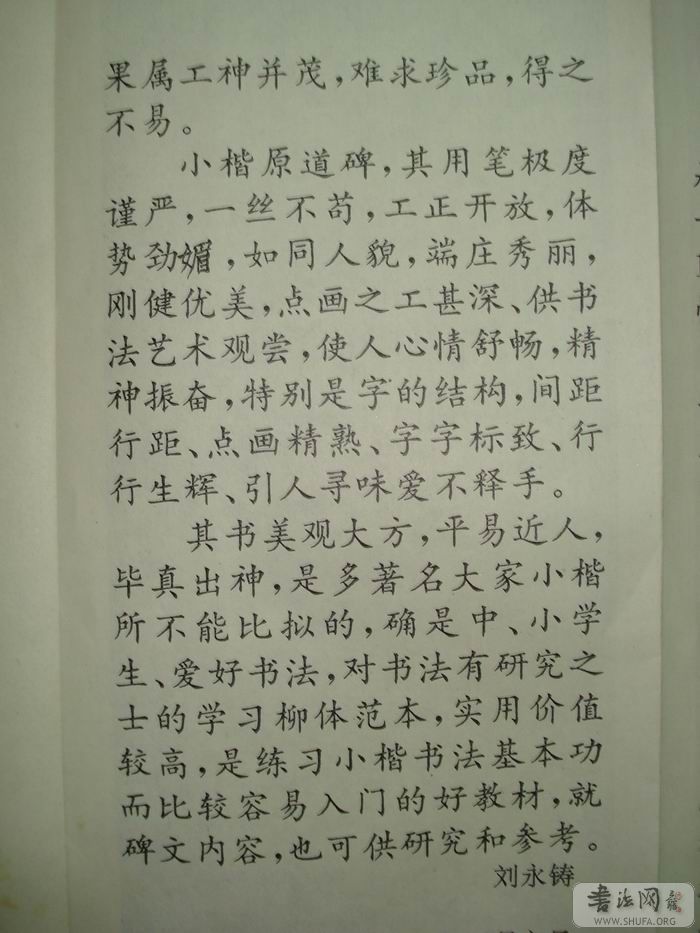 果属工神并茂，难求珍品，得之
不易。
小楷原道碑，其用笔极度
谨严，一丝不苟，工正开放，体
势劲媚，如同人貌，端庄秀丽，
刚健优美，点画之工甚深、供书
法艺术观尝，使人心情舒畅，精
神振奋，特别是字的结构，间距
行距、点画精熟、字字标致、行
行生辉、引人寻味爱不释手。
其书美观大方，平易近人，
毕真出神，是多著名大家小楷
所不能比拟的，确是中、小学
生、爱好书法，对书法有研究之
士的学习柳体范本，实用价值
较高，是练习小楷书法基本功
而比较容易入门的好教材，就
碑文内容，也可供研究和参考。
刘永铸
书法网
WWW.SHUFA.ORG